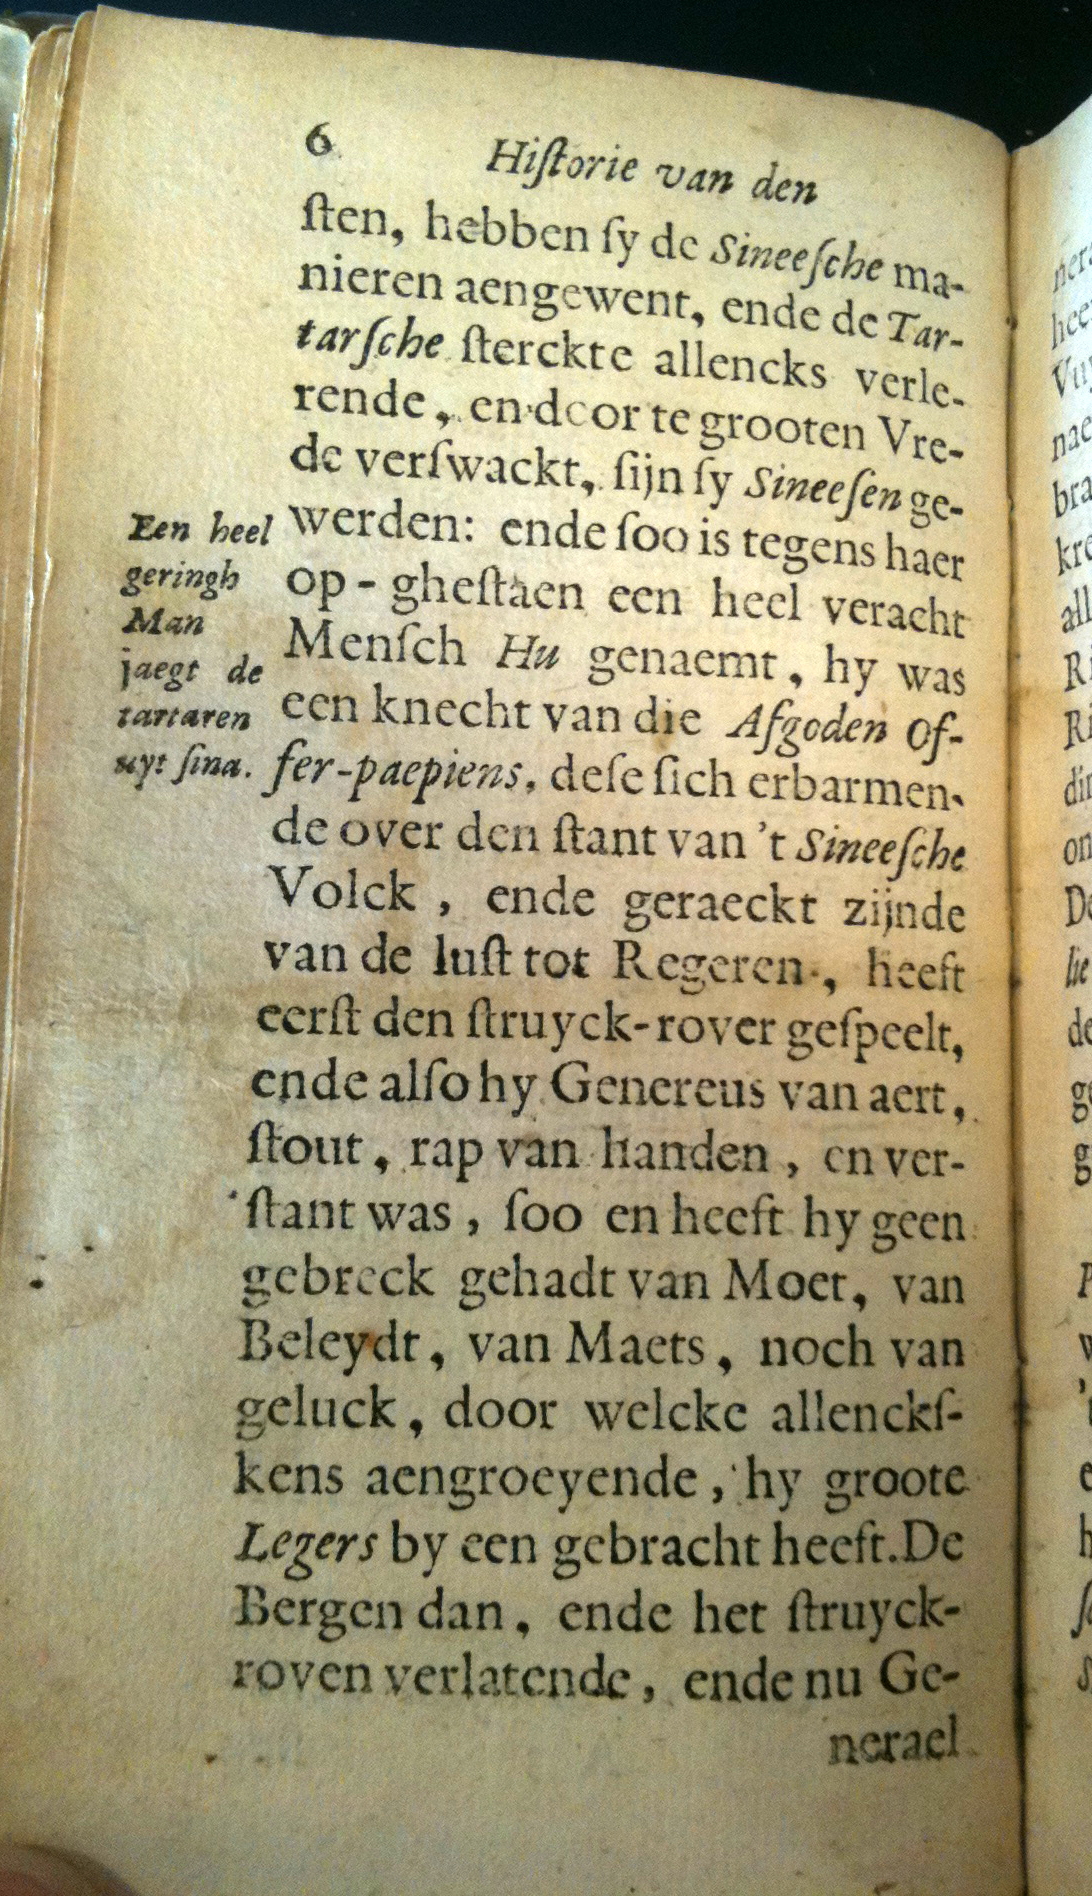 6
Hiſtorie van den
ſten, hebben ſy de Sineeſche ma-
nieren aengewent, ende de Tar-
tarſche ſterckte allencks verle-
rende, en door te grooten Vre-
de verſwackt, ſijn ſy Sineeſen ge-
werden: ende ſoo is tegens haer
op-gheſtaen een heel veracht
Menſch Hu genaemt, hy was
een knecht van die Afgoden Of-
fer-paepiens, deſe ſich erbarmen-
de over den ſtant van 't Sineeſche
Volck, ende geraeckt zijnde
van de luſt tot Regeren, heeft
eerſt den ſtruyck-rover geſpeelt,
ende alſo hy Genereus van aert,
ſtout, rap van handen, en ver-
ſtant was, ſoo en heeft hy geen
gebreck gehadt van Moet, van
Beleydt, van Maets, noch van
geluck, door welcke allenckſ-
kens aengroeyende, hy groote
Legers by een gebracht heeft. De
Bergen dan, ende het ſtruyck-
roven verlatende, ende nu Ge-
nerael
Een heel
geringh
Man
jaegt de
tartaren
uyt ſina.